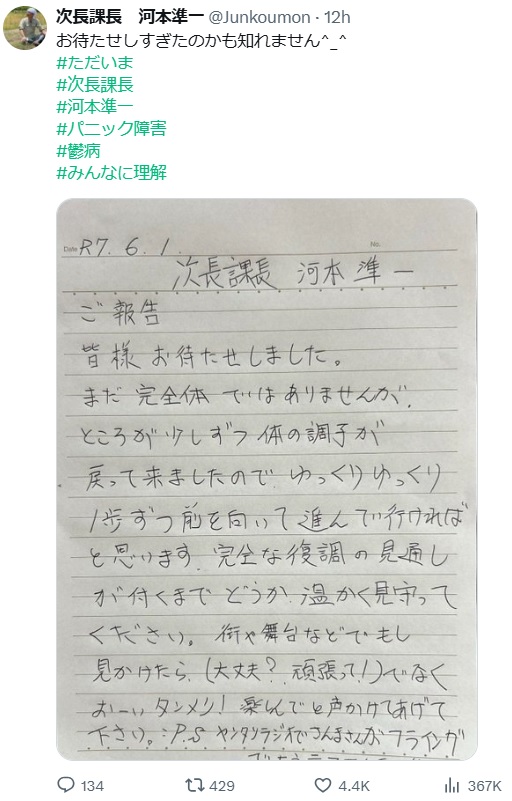 次長課長　河本準一 @Junkoumon · 12h
お待たせしすぎたのかも知れません^_^
#ただいま
#次長課長
#河本準一
#パニック障害
#鬱病
#みんなに理解
Date R7. 6. 1. No.
次長課長 河本準一
ご報告
皆様 お待たせしました。
まだ 完全体 ではありませんが、
ところが少しずつ 体の調子が
戻って来ましたので ゆっくりゆっくり
1歩ずつ前を向いて進んで行ければ
と思います. 完全な復調の見通し
が付くまで どうか 温かく見守って
ください。 街や舞台などでもし
見かけたら、(大丈夫? 頑張って!)でなく
おーいタンメン! 楽しんでと声かけてあげて
下さい。:P.S ヤンタンラジオでさんまさんがフライング